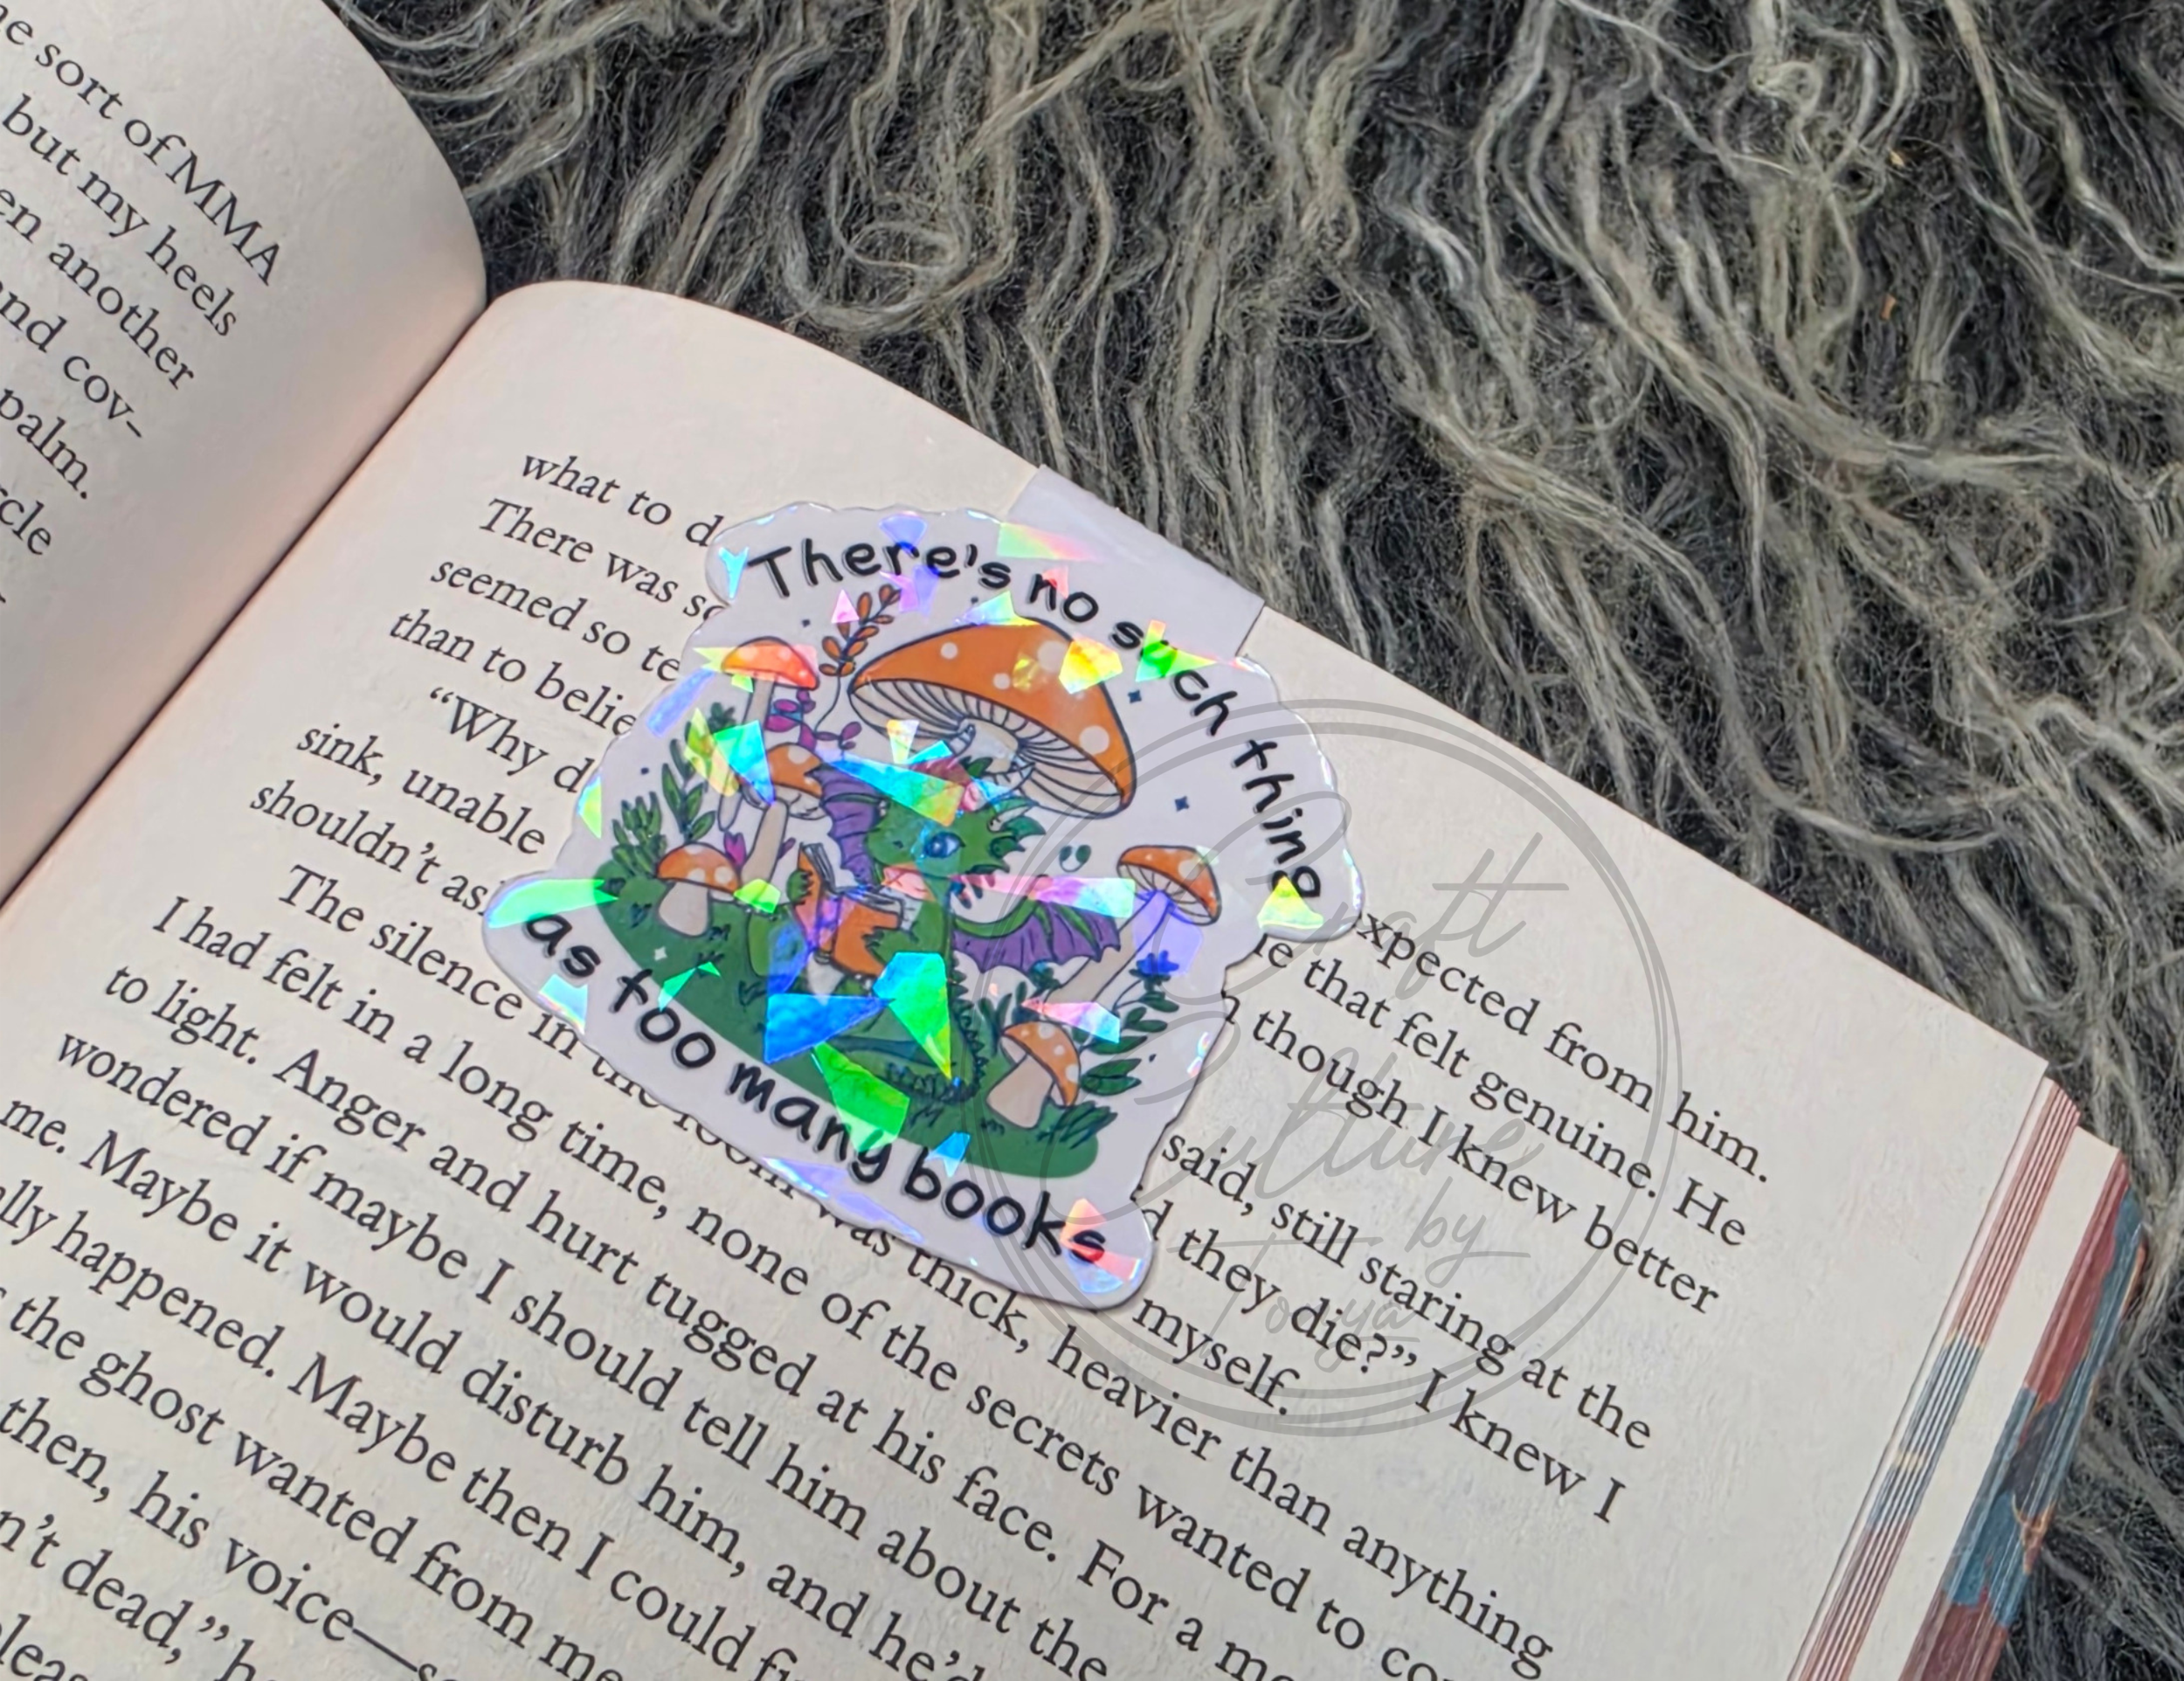 e sort of MMA
but my heels
en another
nd cov-
palm.
rcle
what to d
There was so
seemed so te
than to belie
"Why d
sink, unable
shouldn't as
There's no such thing
as too many books
expected from him.
le that felt genuine. He
n though I knew better
said, still staring at the
d they die?" I knew I
myself.
The silence in the room was thick, heavier than anything
I had felt in a long time, none of the secrets wanted to co
to light. Anger and hurt tugged at his face. For a mo
wondered if maybe I should tell him about the
me. Maybe it would disturb him, and he'd
lly happened. Maybe then I could fi
the ghost wanted from me
then, his voice—
n't dead," h
pleas
Craft
Culture
by
Tonya